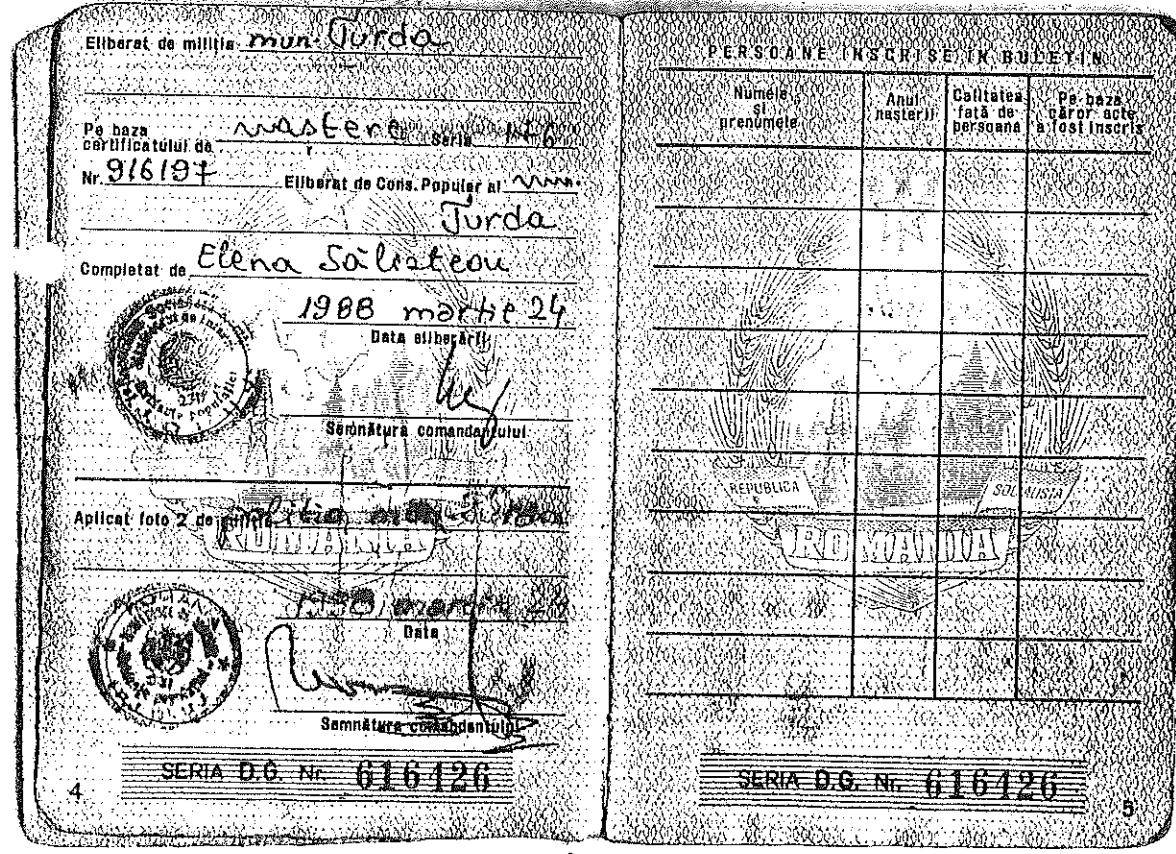 Eliberat de miliția mun. Turda
Pe baza
certificatului de naștere Seria
Nr. 916197 Eliberat de Cons. Popular al mun.
Turda
Completat de Elena
1988 martie 24
Data eliberării
Semnătura comandantului
Aplicat foto 2 de
ROMANIA
martie
Data
Semnătura comandantului
SERIA D.G. Nr. 616426
4
PERSOANE ÎNSCRISE ÎN BULETIN
Numele
și
prenumele
Anul
nașterii
Calitatea
față de
persoana
Pe baza
căror acte
a fost înscris
REPUBLICA
SOCIALISTA
ROMANIA
SERIA D.G. Nr. 616426
5